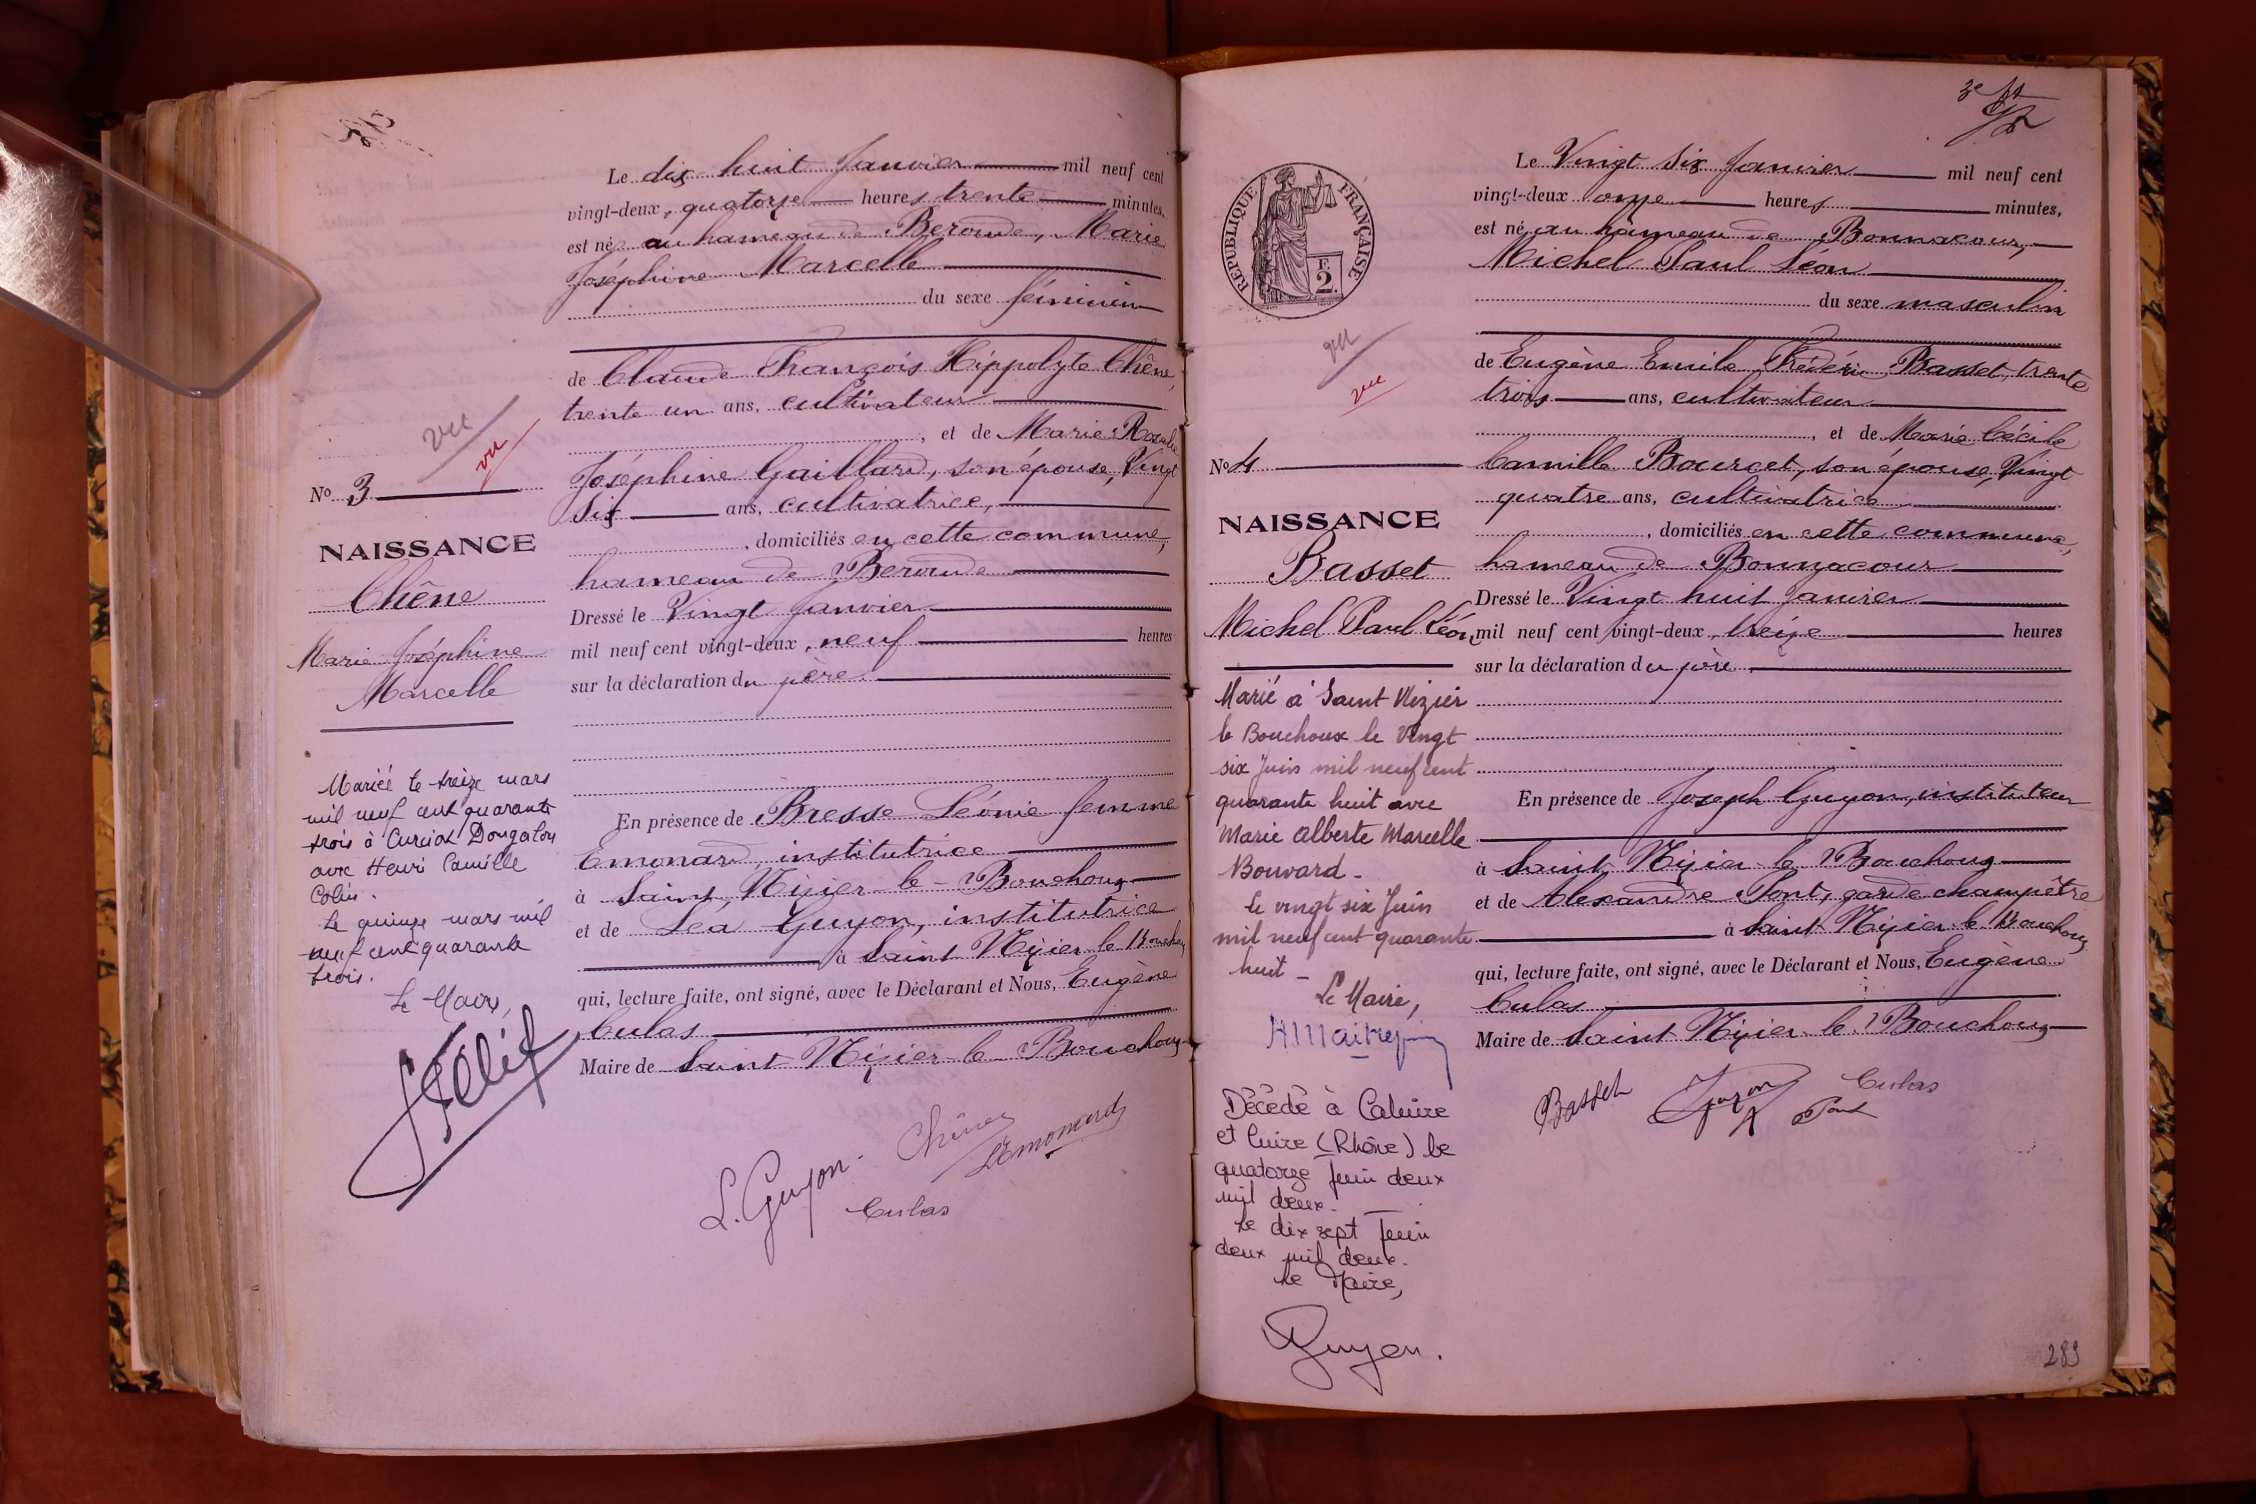 Le dix huit Janvier mil neuf cent
vingt-deux, quatorze heures trente minutes,
est née au hameau de Beroude, Marie
Joséphine Marcelle
du sexe féminin
de Claude François Hippolyte Chêne,
trente un ans, cultivateur
, et de Marie Rosalie
Joséphine Gaillard, son épouse, Vingt
six ans, cultivatrice,
, domiciliés en cette commune,
hameau de Beroude
Dressé le Vingt Janvier
mil neuf cent vingt-deux, neuf heures
sur la déclaration du père.
En présence de Bresse Léonie femme
Emonard, institutrice
à Saint Nizier le Bouchoux
et de Léa Guyon, institutrice
à Saint Nizier le Bouchoux
qui, lecture faite, ont signé, avec le Déclarant et Nous, Eugène
Culas
Maire de Saint Nizier le Bouchoux
L. Guyon. Chêne
L Emonard
Culas
vu
vu
No 3
NAISSANCE
Chêne
Marie Joséphine
Marcelle
Mariée le treize mars
mil neuf cent quarante
trois à Curciat Dongalon
avec Henri Camille
Colin.
Le quinze mars mil
neuf cent quarante
trois.
Le Maire,
Le Vingt six Janvier mil neuf cent
vingt-deux onze heures minutes,
est né au hameau de Bonnacour,
Michel Paul Léon
du sexe masculin
de Eugène Emile Frédéric Basset, trente
trois ans, cultivateur
, et de Marie Cécile
Camille Bourcet, son épouse, Vingt
quatre ans, cultivatrice
, domiciliés en cette commune,
hameau de Bonnacour
Dressé le Vingt huit Janvier
mil neuf cent vingt-deux, treize heures
sur la déclaration du père.
En présence de Joseph Guyon, instituteur
à Saint Nizier le Bouchoux
et de Alexandre Pont, garde champêtre
à Saint Nizier le Bouchoux
qui, lecture faite, ont signé, avec le Déclarant et Nous, Eugène
Culas
Maire de Saint Nizier le Bouchoux
Basset Guyon Culas
Pont
RÉPUBLIQUE FRANÇAISE
F.
2.
vu
vu
No 4
NAISSANCE
Basset
Michel Paul Léon
Marié à Saint Nizier
le Bouchoux le Vingt
six Juin mil neuf cent
quarante huit avec
Marie Alberte Marcelle
Bouvard -
Le vingt six Juin
mil neuf cent quarante
huit -
Le Maire,
Décédé à Caluire
et Cuire (Rhône) le
quatorze juin deux
mil deux.
Le dix sept juin
deux mil deux.
Le Maire,
Guyon.
289